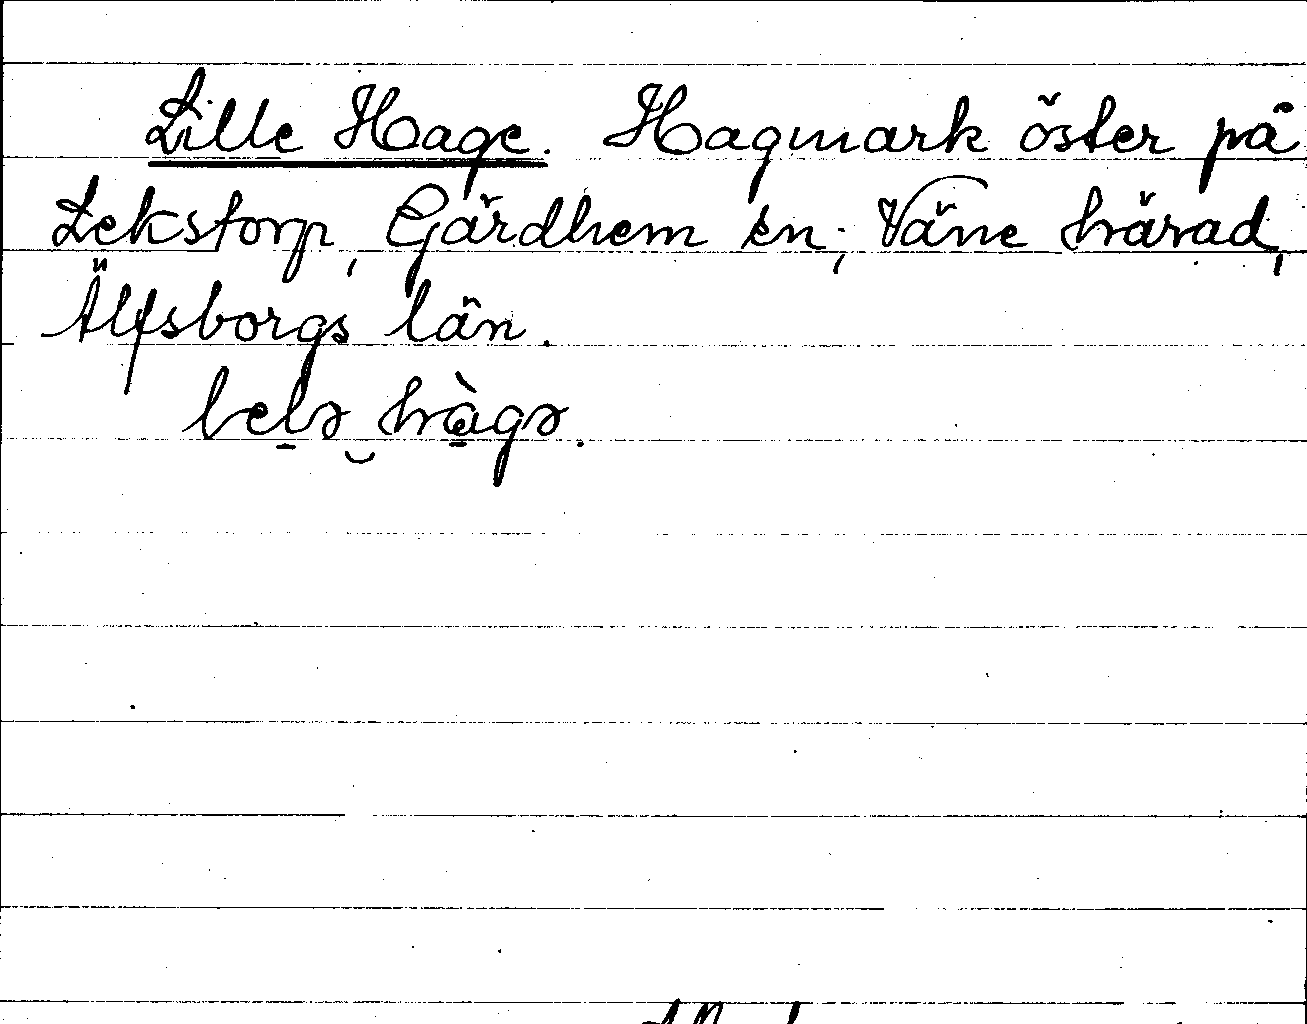 Lille Hage. Hagmark öster på
Lekstorp, Gärdhem sn; Väne härad,
Älfsborgs län.